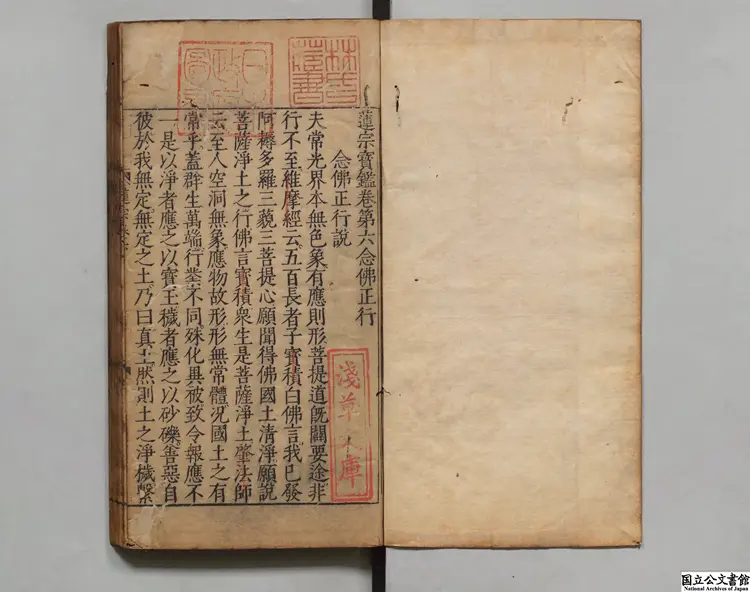 蓮宗寶鑑卷第六念佛正行
念佛正行說
夫常光界本無色象有應則形菩提道旣闢要途非
行不至維摩經云五百長者子寶積白佛言我已發
阿耨多羅三藐三菩提心願聞得佛國土清淨願說
菩薩淨土之行佛言寶積衆生是菩薩淨土肇法師
云至人空洞無象應物故形形無常體況國土之有
常乎蓋群生萬端行業不同殊化異被致令報應不
一是以淨者應之以寶玉穢者應之以砂礫善惡自
彼於我無定無定之土乃曰真土然則土之淨穢繫
林氏
藏書
日本
政府
圖書
淺草文庫
国立公文書館
National Archives of Japan